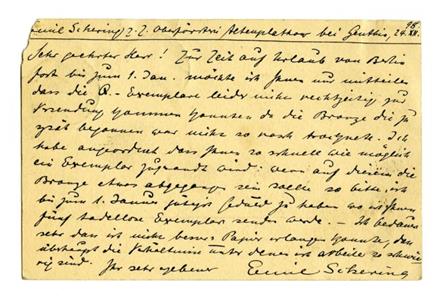 Emil Schering z. Z. Oberförsterei Altenplathow bei Genthin, 24.XII. 98.
Sehr geehrter Herr! Zur Zeit auf Urlaub von Berlin
fort bis zum 1. Jan. möchte ich Ihnen nur mitteilen
dass die Q.-Exemplare leider nicht rechtzeitig zur
Versendung kommen konnten da die Bronze die zu
spät begonnen war nicht so rasch trocknete. Ich
habe angeordnet dass Ihnen so schnell wie möglich
ein Exemplar zugesandt wird. wenn auf diesem die
Bronze etwas abgegangen sein sollte so bitte ich
bis zum 1. Januar gütigst Geduld zu haben wo ich Ihnen
fünf tadellose Exemplare senden werde. — Ich bedaure
sehr dass ich nicht besseres Papier erlangen konnte, dass
überhaupt die Verhältnisse unter denen ich arbeite so schwie-
rig sind. Ihr sehr ergebener Emil Schering